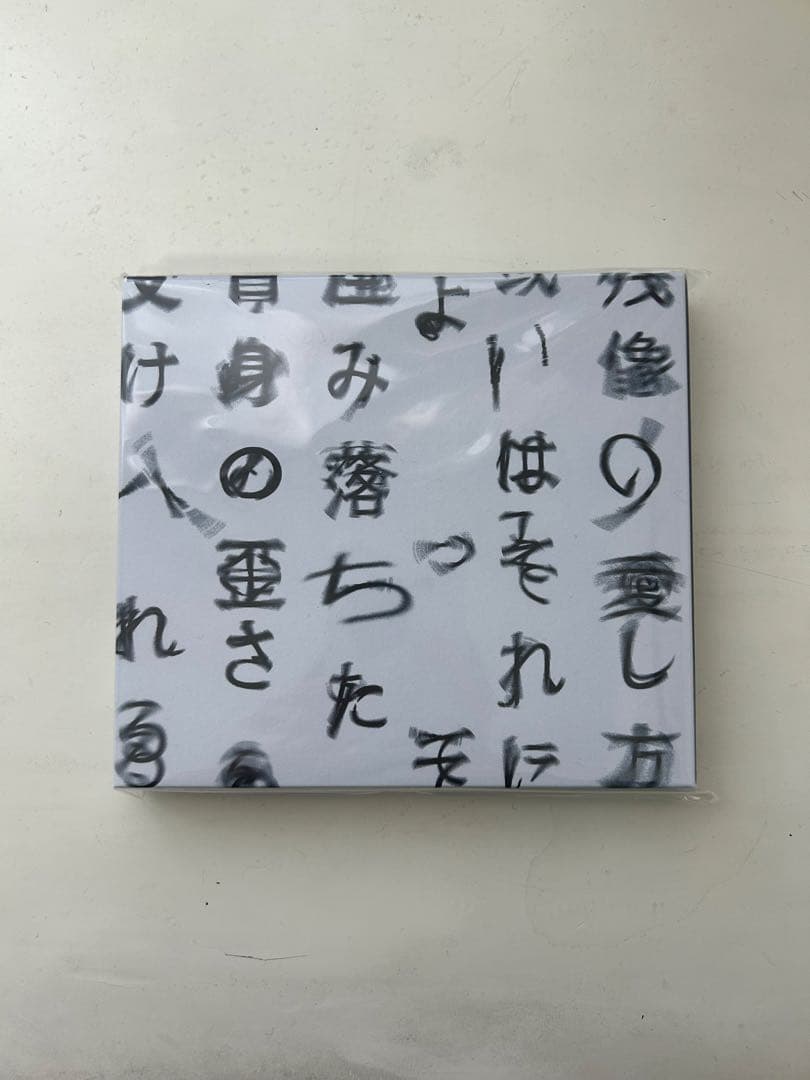 残像の愛し方
或いはそれに
よってそ
産み落ちた
自身の歪さを
受け入れる